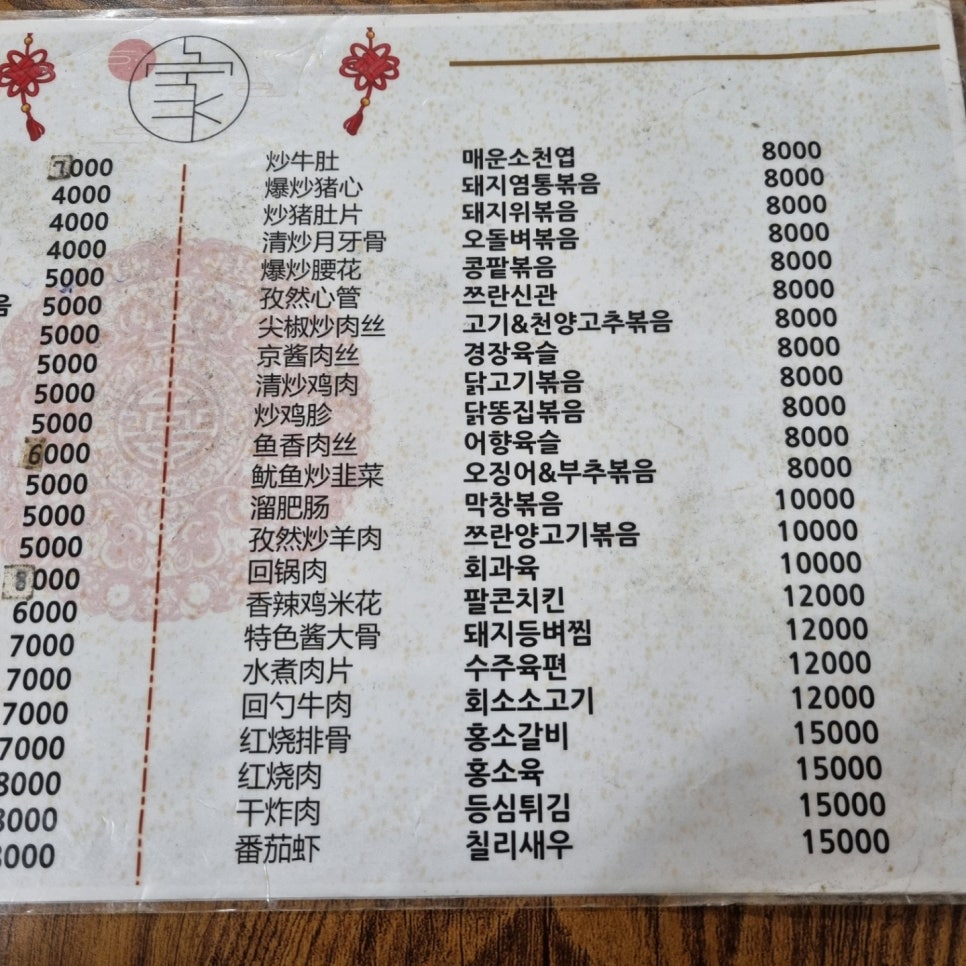 家
7000
4000
4000
4000
5000
음 5000
5000
5000
5000
5000
6000
5000
5000
5000
8000
6000
7000
7000
7000
7000
8000
8000
8000
炒牛肚 매운소천엽 8000
爆炒猪心 돼지염통볶음 8000
炒猪肚片 돼지위볶음 8000
清炒月牙骨 오돌벼볶음 8000
爆炒腰花 콩팥볶음 8000
孜然心管 쯔란신관 8000
尖椒炒肉丝 고기&천양고추볶음 8000
京酱肉丝 경장육슬 8000
清炒鸡肉 닭고기볶음 8000
炒鸡胗 닭똥집볶음 8000
鱼香肉丝 어향육슬 8000
鱿鱼炒韭菜 오징어&부추볶음 8000
溜肥肠 막창볶음 10000
孜然炒羊肉 쯔란양고기볶음 10000
回锅肉 회과육 10000
香辣鸡米花 팔콘치킨 12000
特色酱大骨 돼지등벼찜 12000
水煮肉片 수주육편 12000
回勺牛肉 회소소고기 12000
红烧排骨 홍소갈비 15000
红烧肉 홍소육 15000
干炸肉 등심튀김 15000
番茄虾 칠리새우 15000